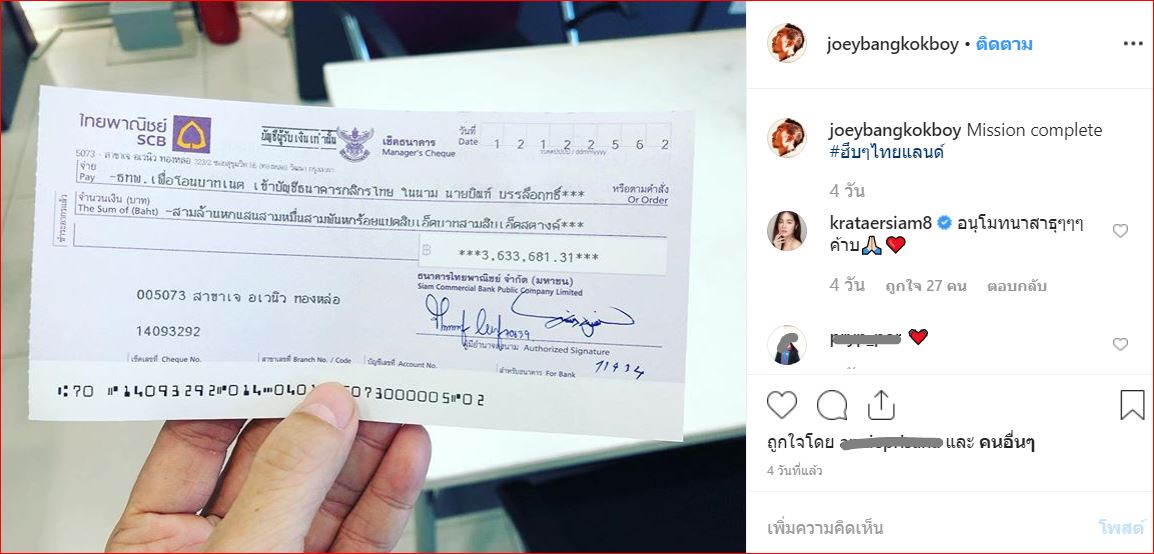 ไทยพาณิชย์
SCB
บัญชีผู้รับเงินเท่านั้น
เช็คธนาคาร
Manager's Cheque
วันที่
Date
1 2 1 2 2 5 6 2
วันเดือนปีปี / ddmmyyyy
5073 - สาขาเจ อเวนิว ทองหล่อ 323/2 ซอยสุขุมวิท 55 (ทองหล่อ) วัฒนา กรุงเทพฯ
จ่าย
Pay
-ธทพ.เพื่อโอนบาทเนต เข้าบัญชีธนาคารกสิกรไทย ในนาม นายบิณท์ บรรลือฤทธิ์***
หรือตามคำสั่ง
Or Order
จำนวนเงิน (บาท)
The Sum of (Baht)
-สามล้านหกแสนสามหมื่นสามพันหกร้อยแปดสิบเอ็ดบาทสามสิบเอ็ดสตางค์***
ชำระอากรแล้ว
฿ ***3,633,681.31***
ธนาคารไทยพาณิชย์ จำกัด (มหาชน)
Siam Commercial Bank Public Company Limited
005073 สาขาเจ อเวนิว ทองหล่อ
14093292
ผู้มีอำนาจลงนาม Authorized Signature
เช็คเลขที่ Cheque No.
สาขาเลขที่ Branch No. / Code
บัญชีเลขที่ Account No.
สำหรับธนาคาร For Bank
11934
joeybangkokboy • ติดตาม
joeybangkokboy Mission complete
#ฮีบๆไทยแลนด์
4 วัน
krataersiam8 อนุโมทนาสาธุๆๆๆ
ค้าบ🙏🏻❤️
4 วัน ถูกใจ 27 คน ตอบกลับ
❤️
ถูกใจโดย และ คนอื่นๆ
4 วันที่แล้ว
เพิ่มความคิดเห็น
โพสต์